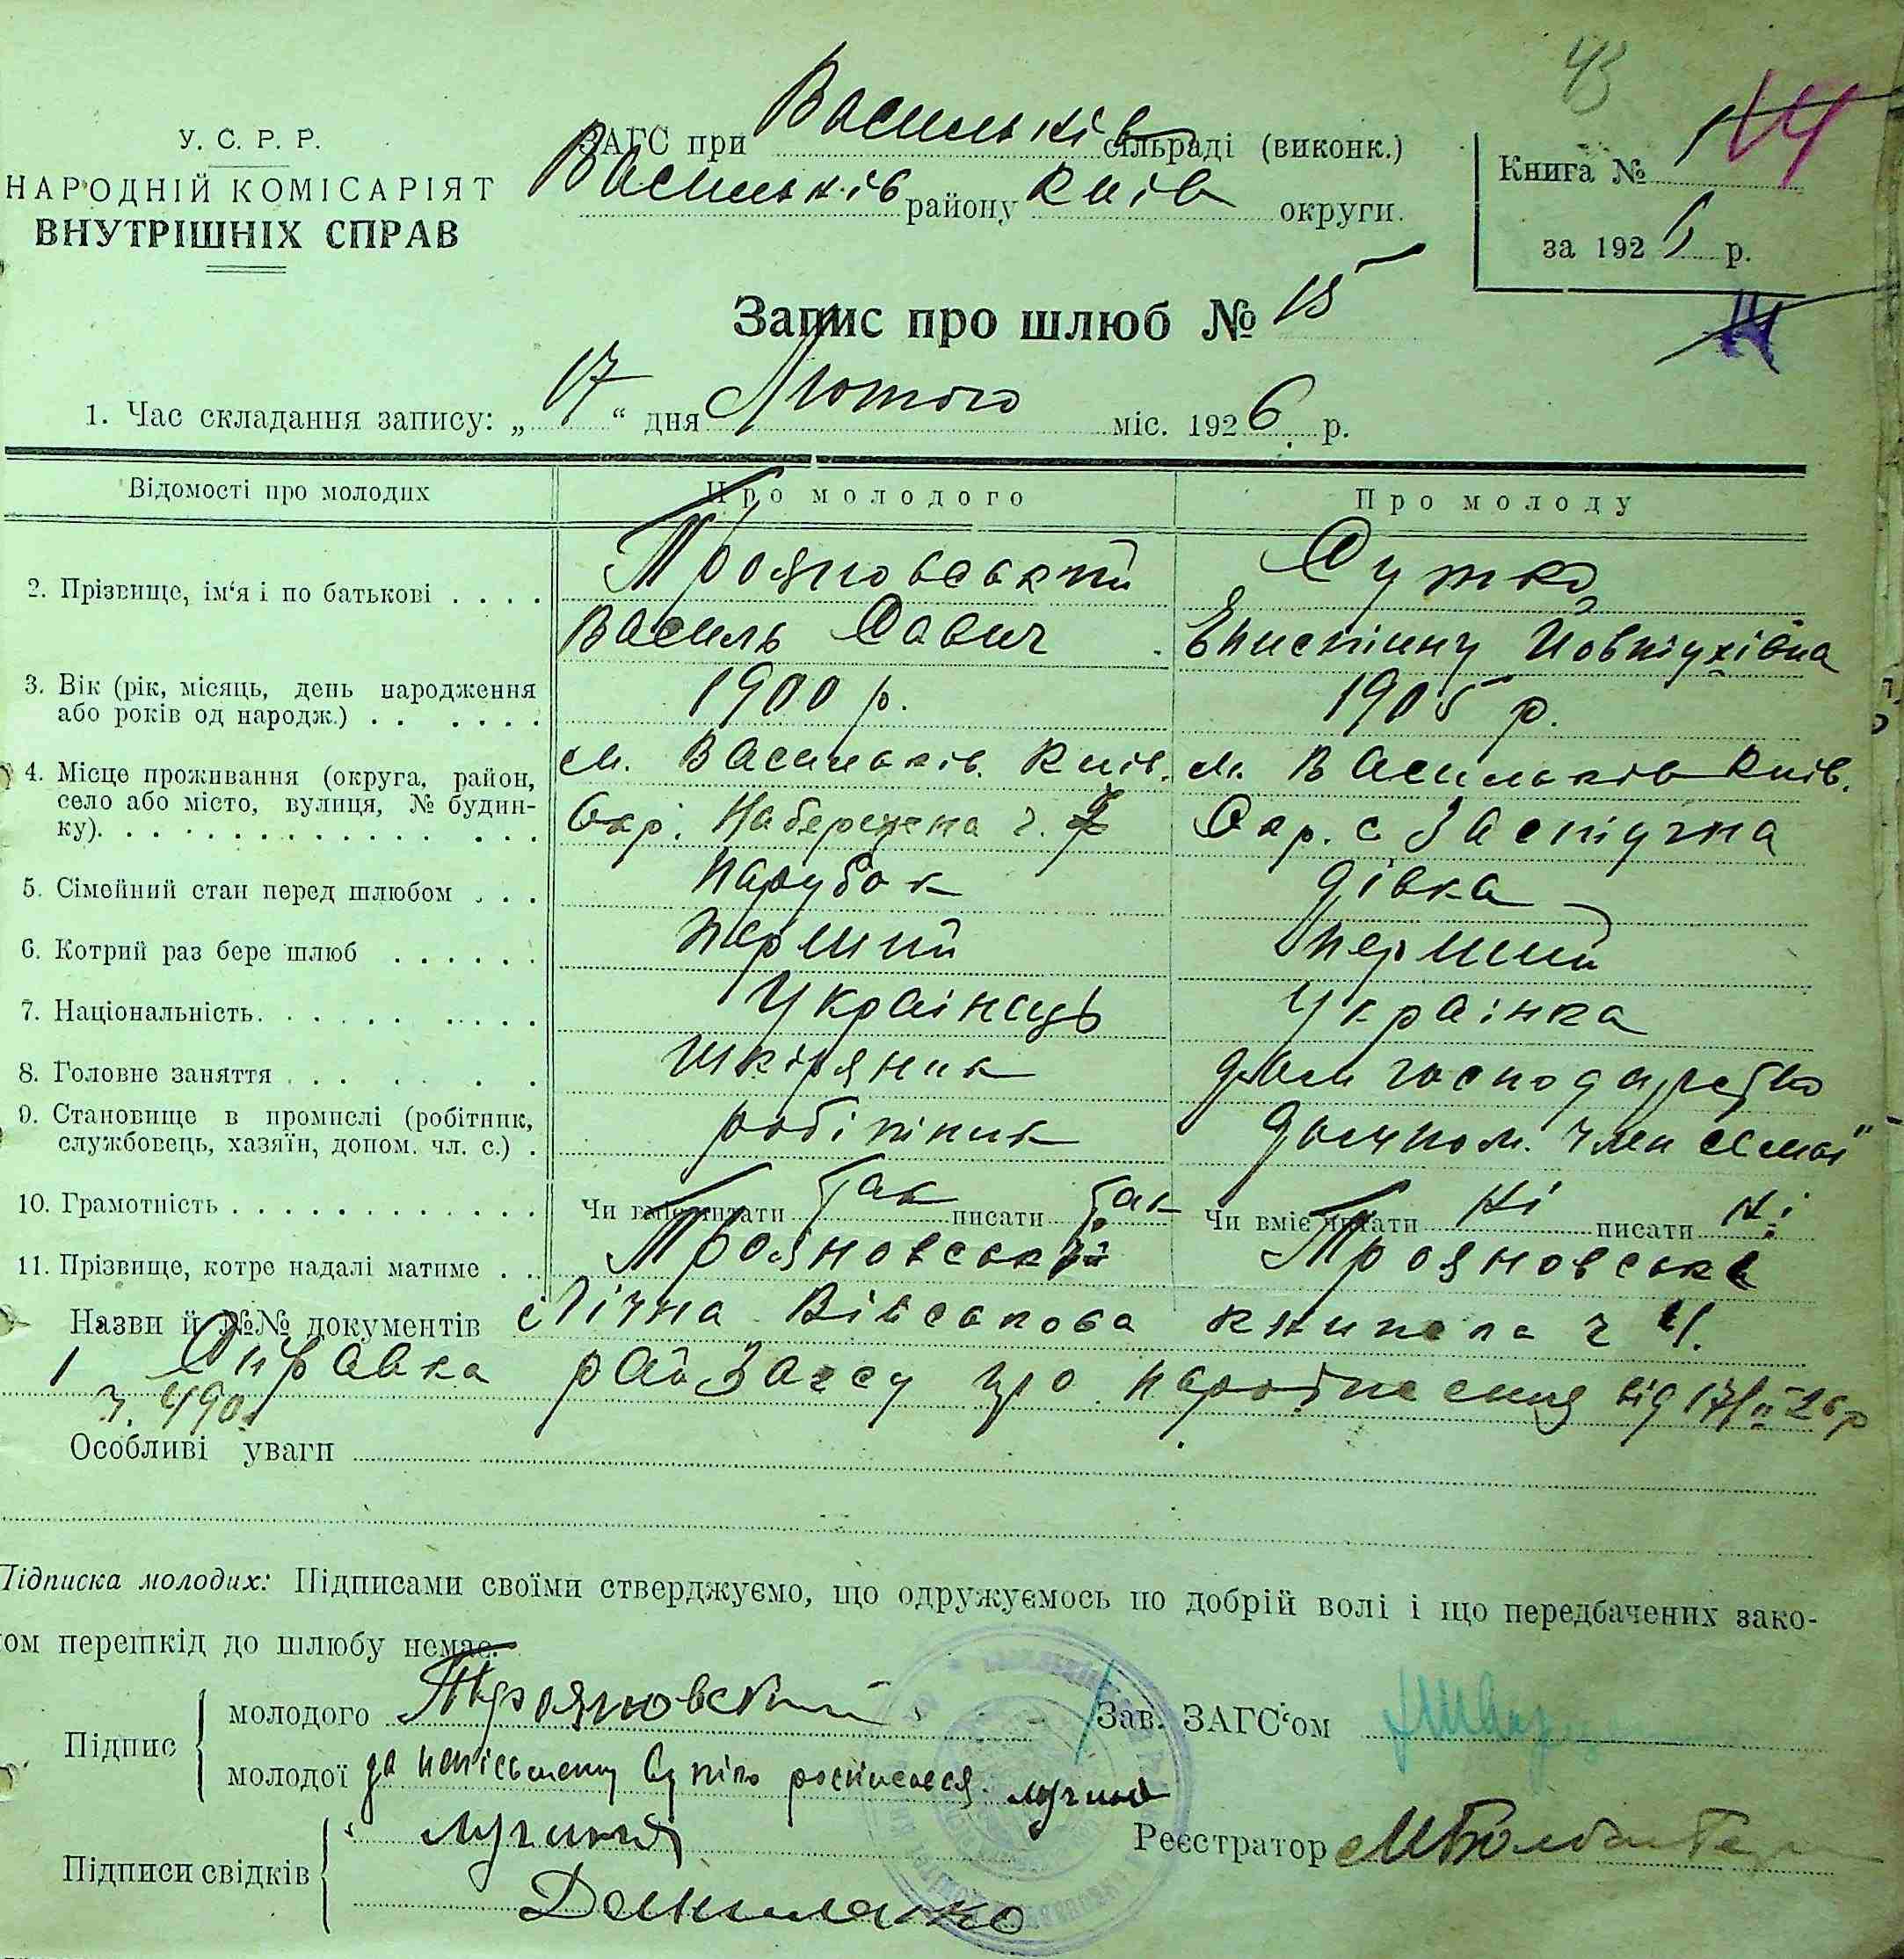 43
У. С. Р. Р.
НАРОДНІЙ КОМІСАРІЯТ
ВНУТРІШНІХ СПРАВ
ЗАГС при Васильків сільраді (виконк.)
Васильків району Київ округи.
Книга № 1 14
за 1926 р.
14
Запис про шлюб № 15
1. Час складання запису: „17“ дня Лютого міс. 1926 р.
Відомості про молодих Про молодого Про молоду
2. Прізвище, ім'я і по батькові . . . . Трояновський Сутко
Василь Савич Йовтухівна
3. Вік (рік, місяць, день народження
або років од народж.) . . . . . . 1900 р. 1905 р.
4. Місце проживання (округа, район, м. Васильків. Київ. м. Васильків Київ.
село або місто, вулиця, № будин-
ку). Окр. Набережна ч. Окр. с Застугна
5. Сімейний стан перед шлюбом . . . парубок дівка
6. Котрий раз бере шлюб . . . . . . перший перший
7. Національність. Українець Українка
8. Головне заняття шкіряник дом господарство
9. Становище в промислі (робітник,
службовець, хазяїн, допом. чл. с.) . робітник допом. член сімї
10. Грамотність Чи вміє читати Так писати Так Чи вміє читати Ні писати Ні
11. Прізвище, котре надалі матиме . . Трояновський Трояновська
Назви й №№ документів Лічна Військова книжка ч
1 Справка райЗагсу про народження від 17/II-26р
ч. 490
Особливі уваги
Підписка молодих: Підписами своїми стверджуємо, що одружуємось по добрій волі і що передбачених зако-
ом перешкід до шлюбу немає.
Підпис
молодого Трояновский
молодої за росписався
Зав. ЗАГС'ом
Підписи свідків
Даниленко
Реєстратор